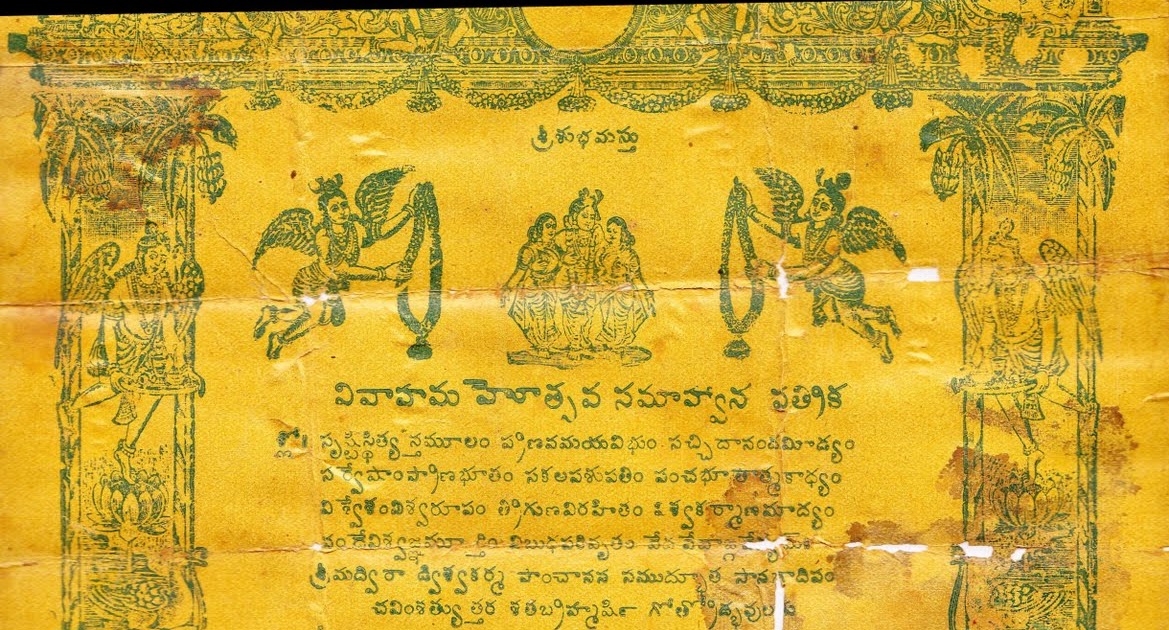 శ్రీశుభమస్తు
వివాహమహోత్సవ సమాహ్వాన పత్రిక
శ్లో॥ సృష్టిస్థిత్యన్తమూలం ప్రణవమయవిభుం సచ్చిదానందమీడ్యం
సర్వేషాంప్రాణభూతం సకలపశుపతిం పంచభూతాత్మకాధ్యం
విశ్వేశంవిశ్వరూపం త్రిగుణవిరహితం విశ్వకర్మాణమాద్యం
వందేవిశ్వజ్ఞమూర్తిం విబుధపరివృతం
శ్రీమద్విరాడ్విశ్వకర్మ పాంచానన సముద్భూత సానగాదిపం
చవింశత్యుత్తర శతబ్రహ్మర్షి గోత్రోద్భవులగు